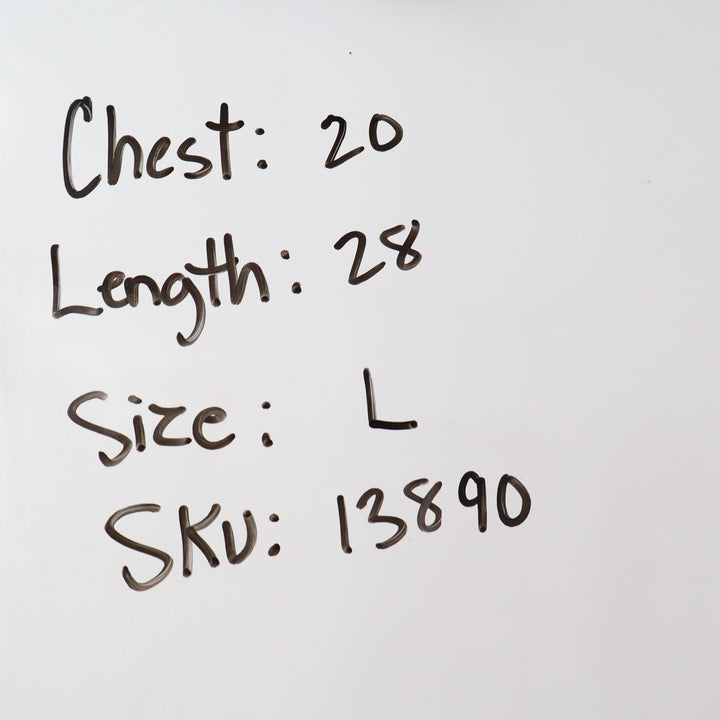 Chest: 20
Length: 28
Size: L
SKU: 13890